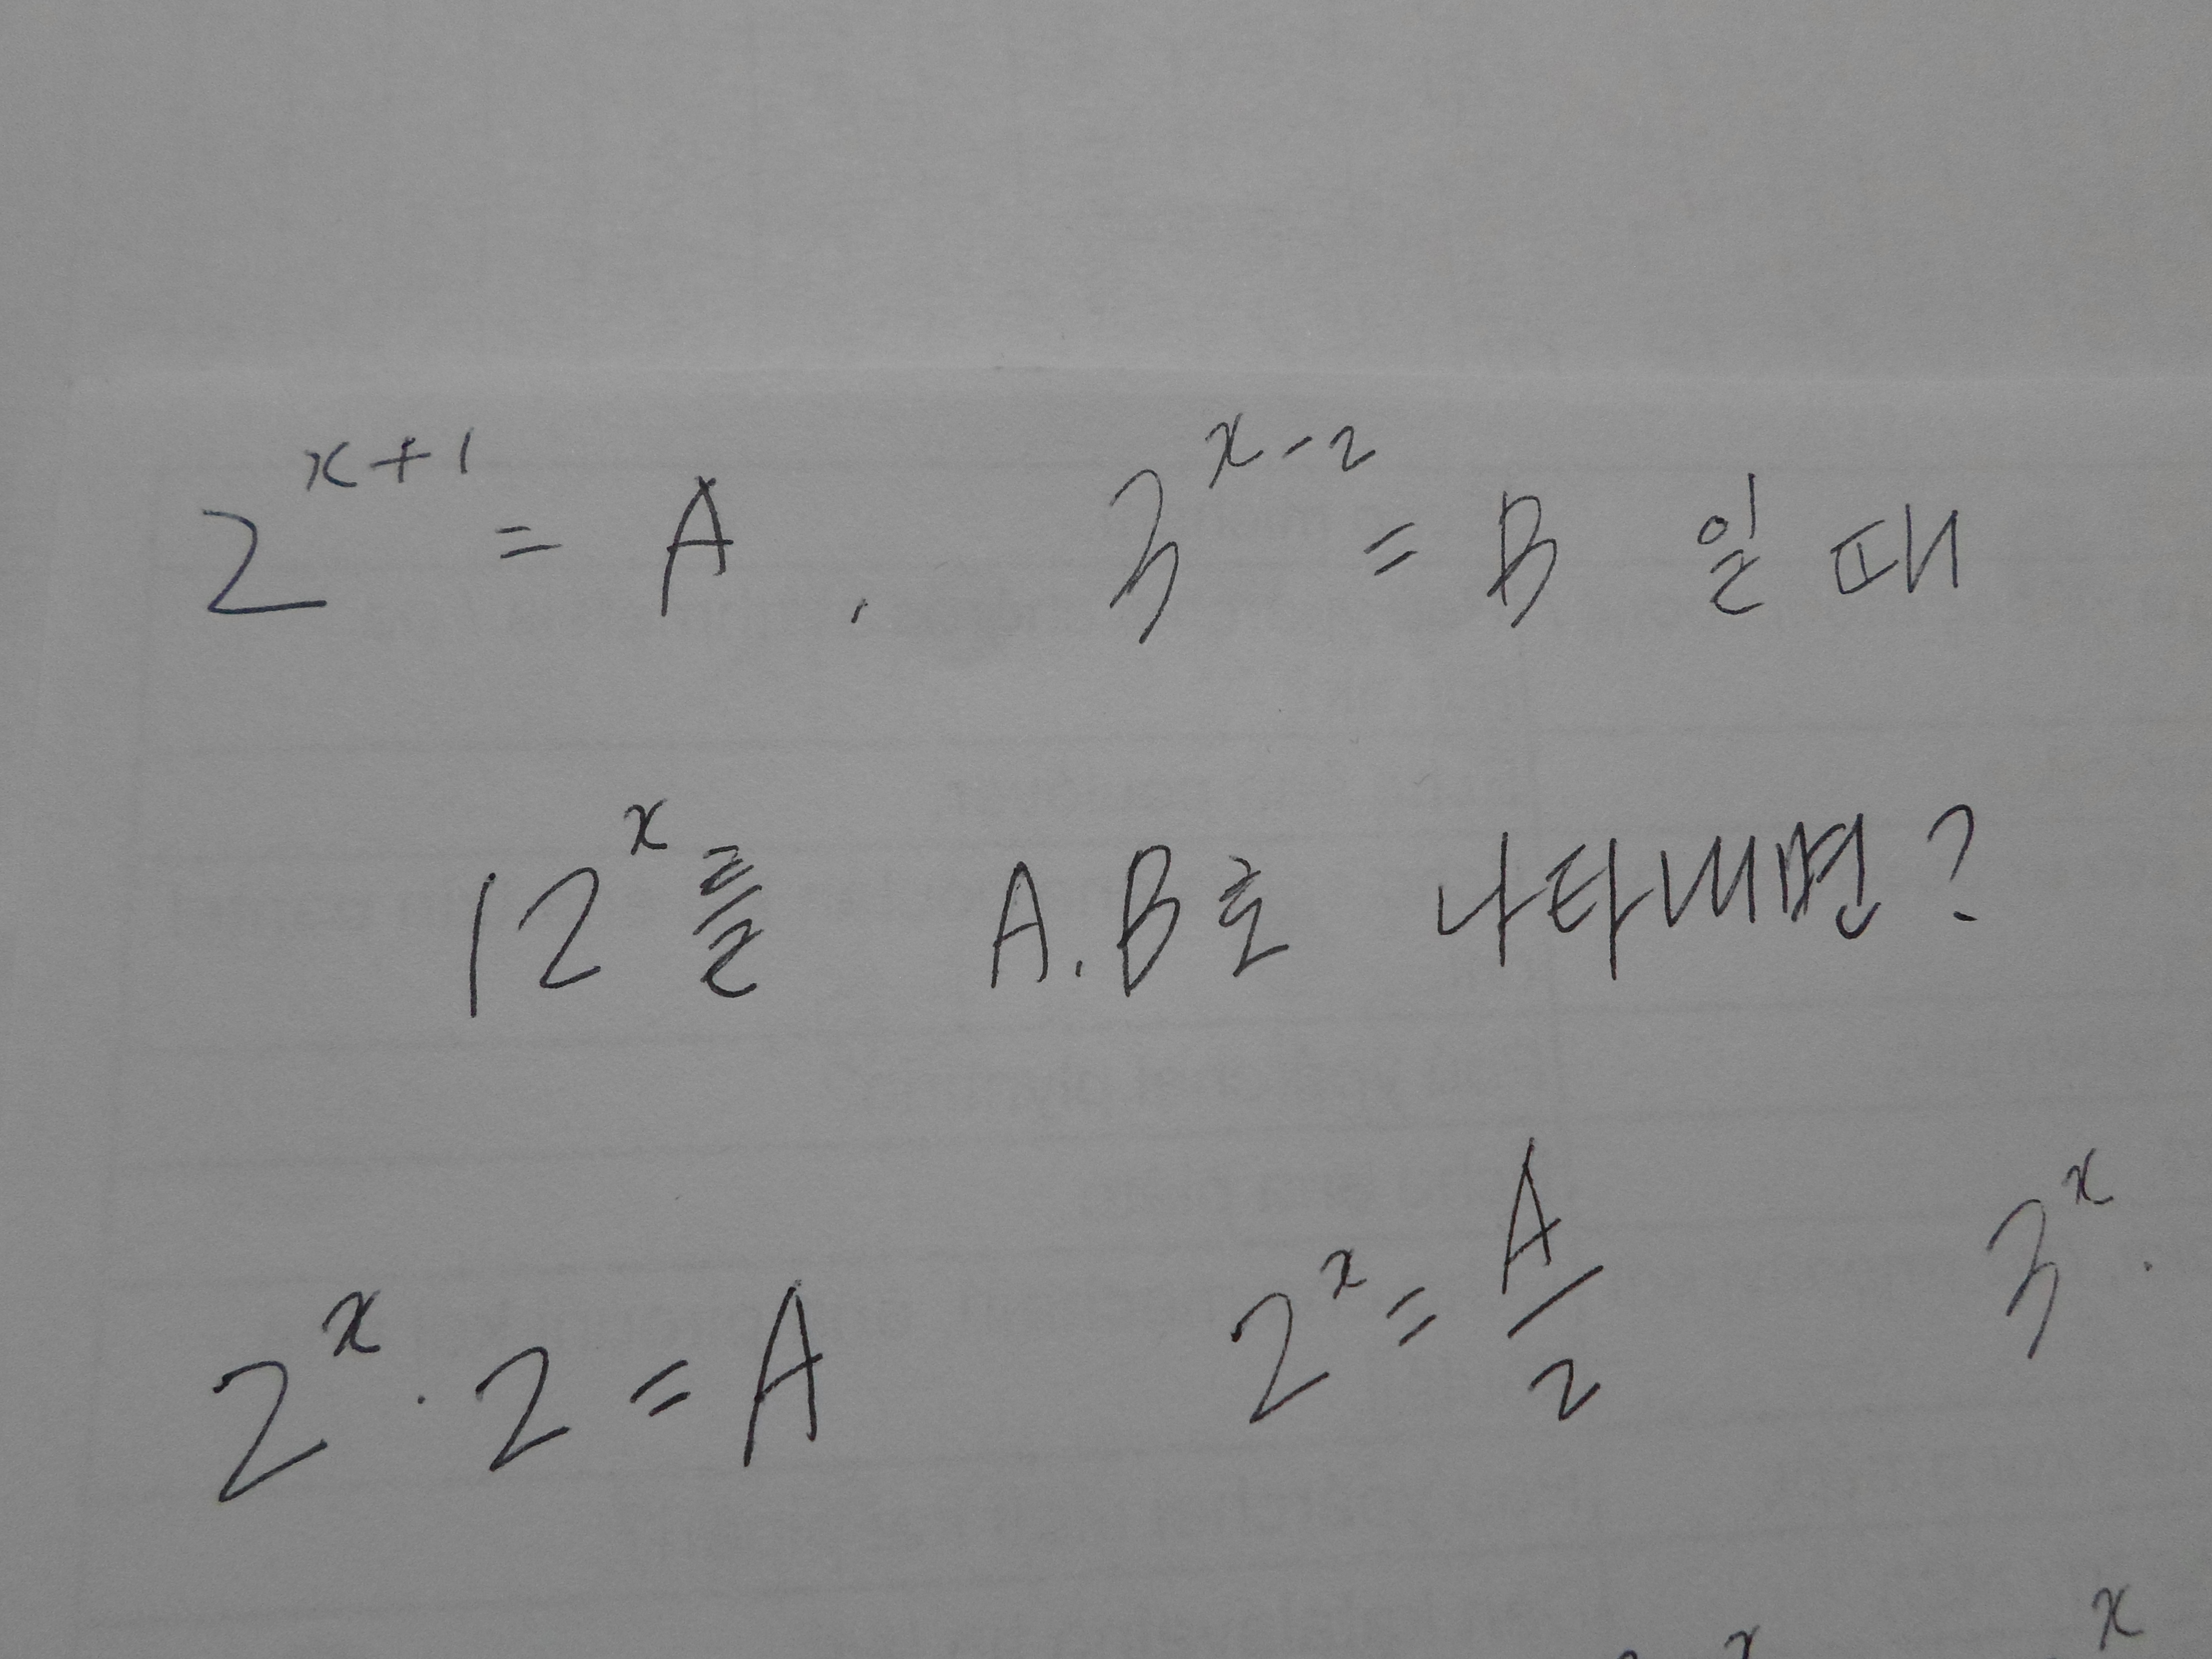 2^{x+1} = A, 3^{x-2} = B 일 때
12^x를 A.B로 나타내면?
2^x · 2 = A 2^x = A/2 3^x ·
x x